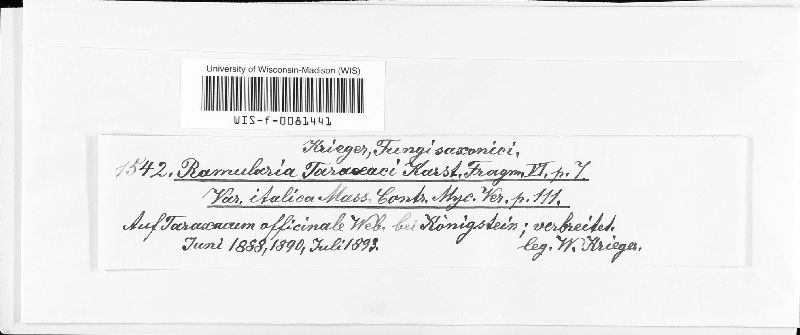 University of Wisconsin-Madison (WIS)
WIS-f-0081441
Krieger, Fungi saxonici.
1542. Ramularia Taraxaci Karst. Fragm. VI, p. 7.
Var. italica Mass. Contr. Myc. Ver. p. 111.
Auf Taraxacum officinale Web. bei Königstein; verbreitet.
Juni 1888, 1890, Juli 1893. leg. W. Krieger.